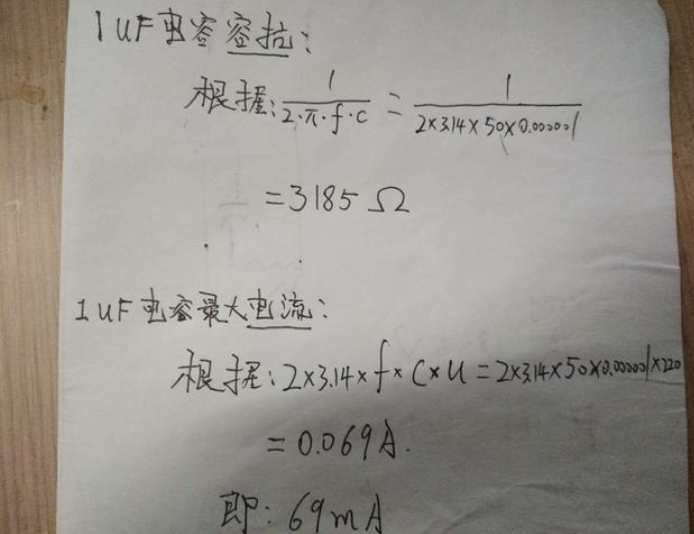 1uF电容容抗:
根据: 1/(2·π·f·c) = 1/(2×3.14×50×0.000001)
=3185 Ω
1uF电容最大电流:
根据: 2×3.14×f×C×U=2×3.14×50×0.000001×220
=0.069A.
即: 69mA